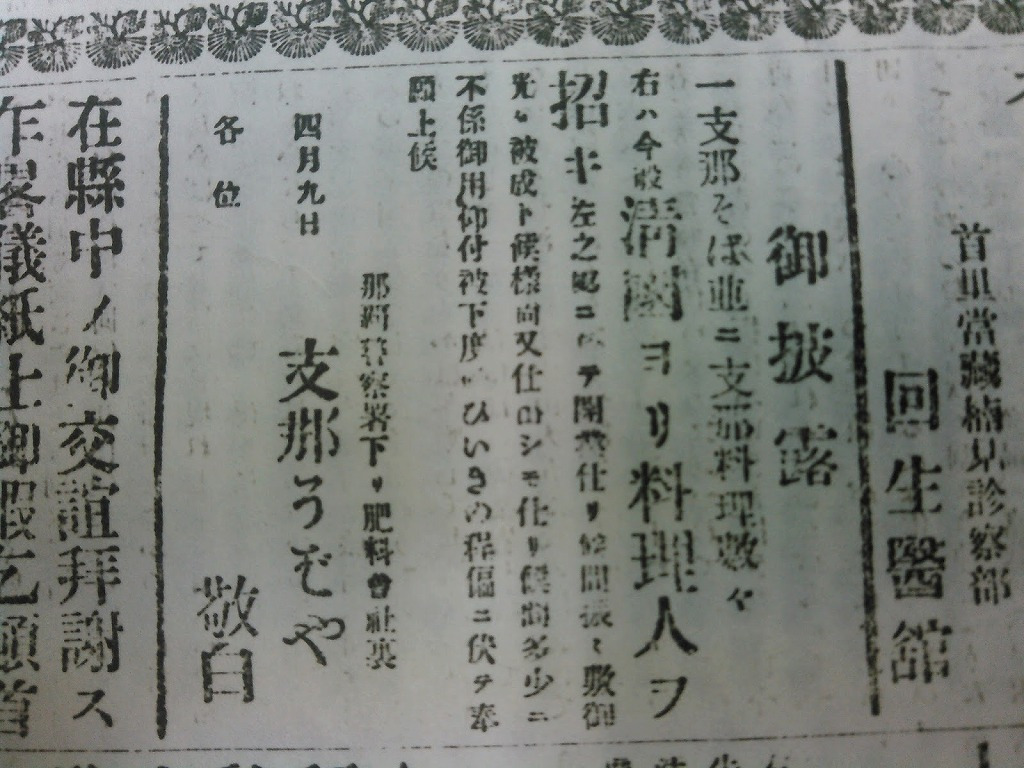 首里當藏楠見診察部
回生醫舘
御披露
一支那そば並ニ支那料理數々
右ハ今般清國ヨリ料理人ヲ
招キ左之處ニ於テ開業仕リ候間振々敷御
光來被成下候樣尚又仕出シモ仕リ候間多少ニ
不係御用仰付被下度御ひいきの程偏ニ伏テ奉
願上候
四月九日
那覇警察署下リ肥料會社裏
支那うどんや
各位
敬白
在縣中ノ御交誼拜謝ス
乍畧儀紙上御暇乞頓首